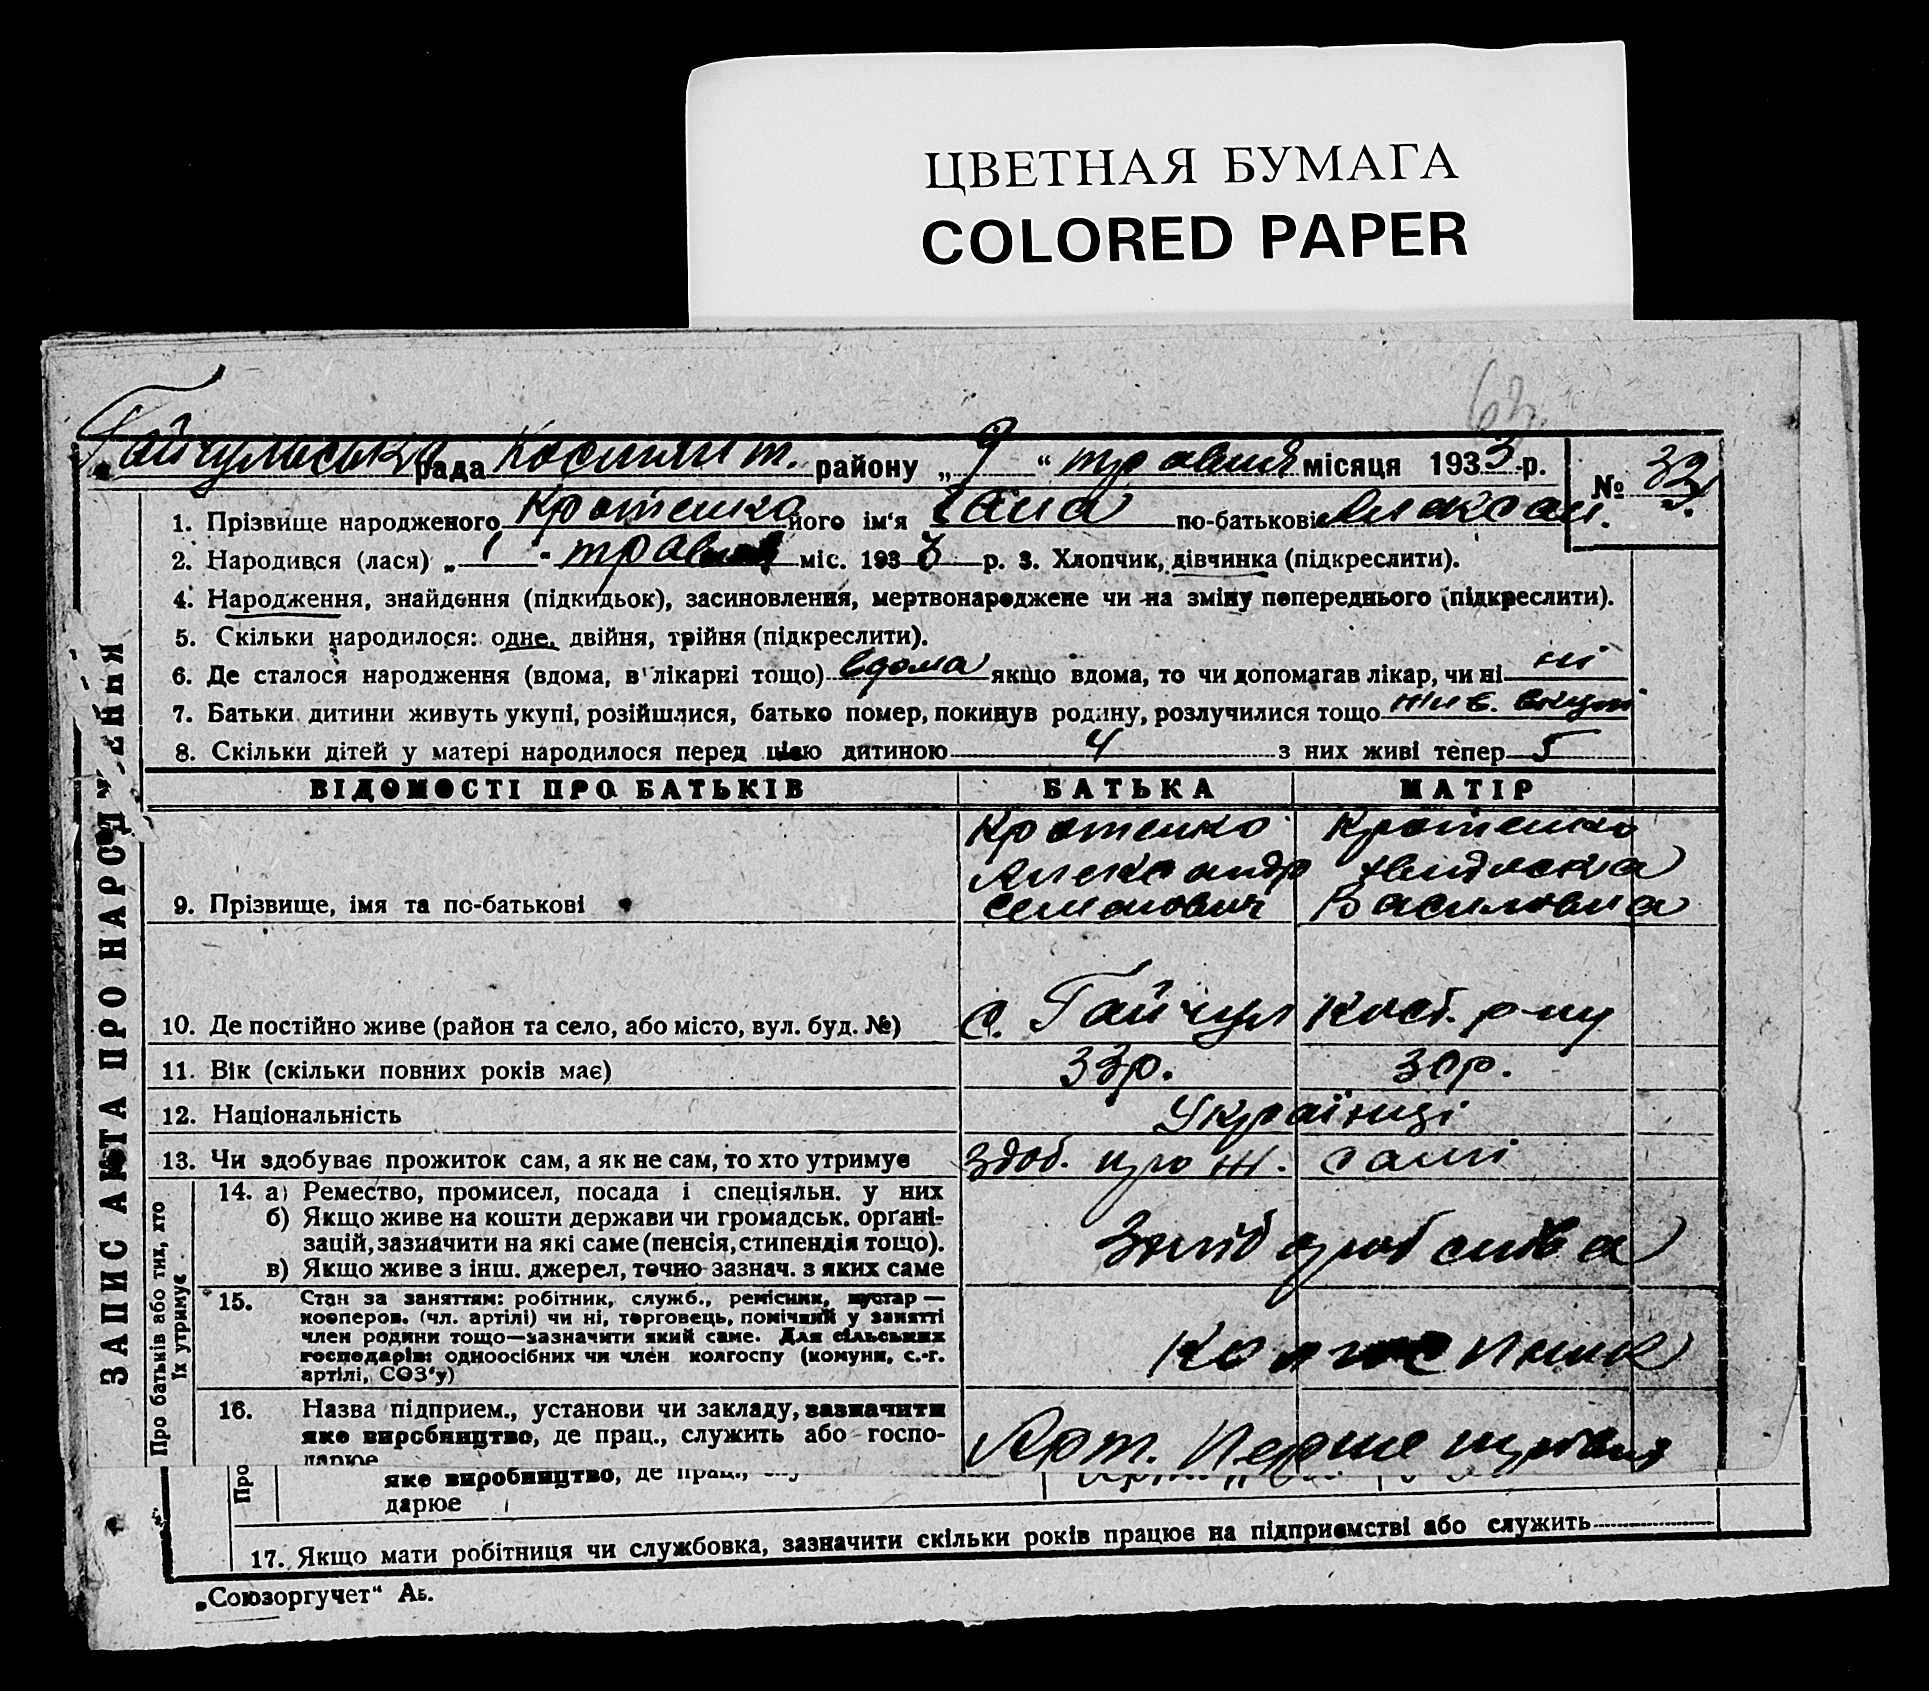 ЦВЕТНАЯ БУМАГА
COLORED PAPER
63.
Гайчульська рада Костянт. району „9“ травня місяця 1933 р.
№ 32
1. Прізвище народженого Кротенко його ім'я Ганна по-батькові Александ.
2. Народився (лася) „1“ травня міс. 1933 р. 3. Хлопчик, дівчинка (підкреслити).
4. Народження, знайдення (підкидьок), засиновлення, мертвонароджене чи на зміну попереднього (підкреслити).
5. Скільки народилося: одне, двійня, трійня (підкреслити).
6. Де сталося народження (вдома, в лікарні тощо) вдома якщо вдома, то чи допомагав лікар, чи ні ні
7. Батьки дитини живуть укупі, розійшлися, батько помер, покинув родину, розлучилися тощо
8. Скільки дітей у матері народилося перед цією дитиною 4 з них живі тепер 5
ЗАПИС АКТА ПРО НАРОДЖЕННЯ
ВІДОМОСТІ ПРО БАТЬКІВ БАТЬКА МАТІР
9. Прізвище, імя та по-батькові Кротенко Александр Семенович Кротенко Василівна
10. Де постійно живе (район та село, або місто, вул. буд. №) с. Гайчул Кост. р-ну
11. Вік (скільки повних років має) 33р. 30р.
12. Національність Українці
13. Чи здобуває прожиток сам, а як не сам, то хто утримує здоб. прож. самі
Про батьків або тих, хто
їх утримує
14. а) Ремество, промисел, посада і спеціяльн. у них
б) Якщо живе на кошти держави чи громадськ. органі-
зацій, зазначити на які саме (пенсія, стипендія тощо).
в) Якщо живе з інш. джерел, точно зазнач. з яких саме
15. Стан за заняттям: робітник, служб., ремісник, кустар —
кооперов. (чл. артілі) чи ні, торговець, помічний у занятті
член родини тощо—зазначити який саме. Для сільських
господарів: одноосібних чи член колгоспу (комуни, с.-г.
артілі, СОЗ'у)
Колгоспник
16. Назва підприєм., установи чи закладу, зазначити
яке виробництво, де прац., служить або госпо-
дарює
Арт. Перше травня
Про
яке виробництво, де прац.,
дарює
17. Якщо мати робітниця чи службовка, зазначити скільки років працює на підприємстві або служить
„Союзоргучет“ Аь.